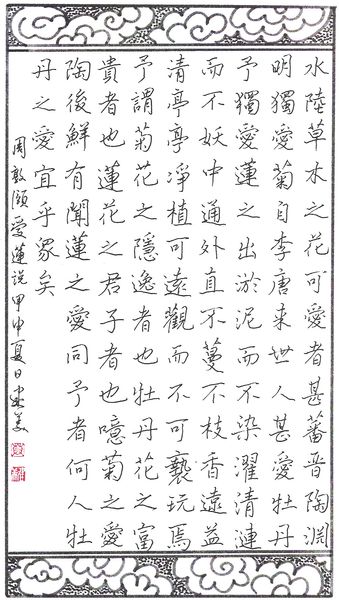 水陸草木之花可愛者甚蕃晋陶渊
明獨愛菊自李唐来世人甚愛牡丹
予獨愛蓮之出淤泥而不染濯清漣
而不妖中通外直不蔓不枝香遠益
清亭亭淨植可遠觀而不可褻玩焉
予謂菊花之隱逸者也牡丹花之富
貴者也蓮花之君子者也噫菊之愛
陶後鮮有聞蓮之愛同予者何人牡
丹之愛宜乎衆矣
周敦頤愛蓮説甲申夏日